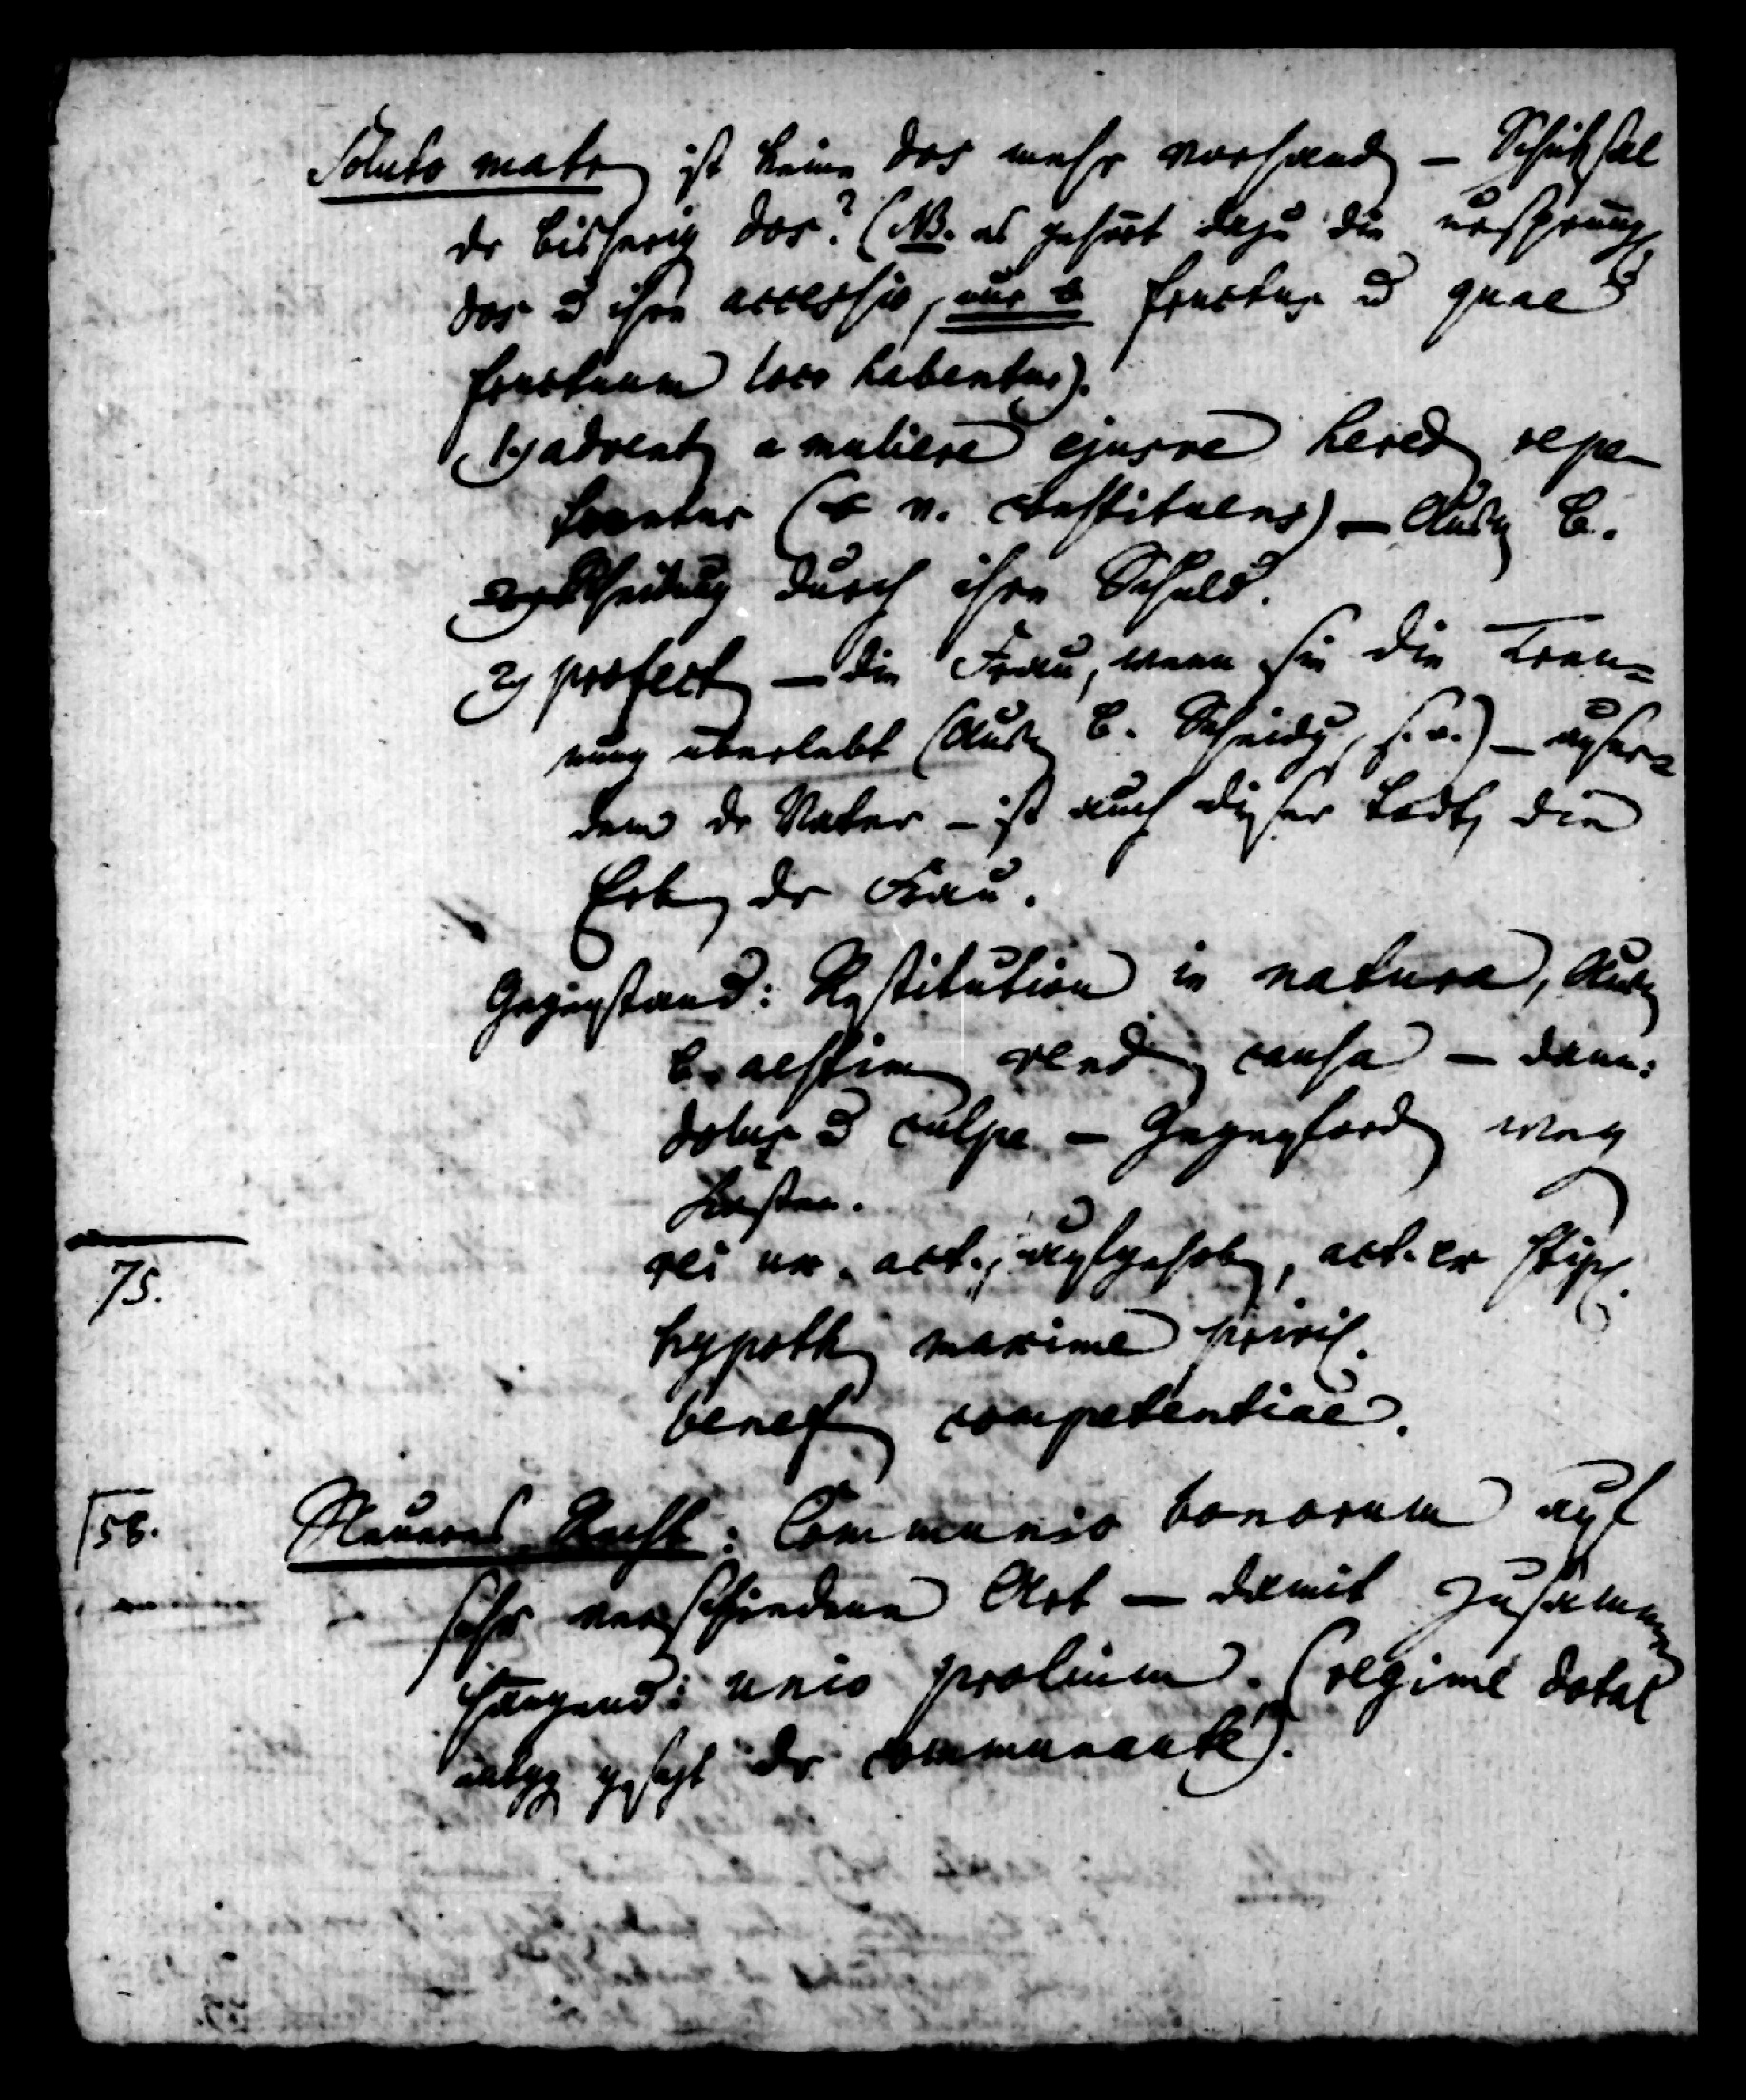 Soluto matr ist keine dos mehr vorhand – Schicksal
der bisherig dos? (NB. es gehört dazu die ursprüng
dos u ihre accessio, nur fructus u quae
fructuum loco habentur).
1) advent a muliere ejusve hered repe-
tuntur (n. constituens) – Ausn b.
Scheidung durch ihre Schuld.
2) profect – die Frau, wenn sie die Tren=
nung überlebt (Ausn b. Scheidg, s. o.) – außer=
dem der Vater – ist auch dieser todt, die
Erb der Frau.
Gegenstand: Restitution in natura, Ausn
b. aestim vend causa – dann:
dolus u culpa – Gegenford weg
Kosten.
rei ux. act., aufgehob, act. ex stip.
75.
hypoth maxime privil.
benef competentiae.
56. Neueres Recht: Communio bonorum auf
sehr verschiedene Art – damit zusammen
hängend: unio prolium. (regime dotal
entgg gesetzt der communauté).